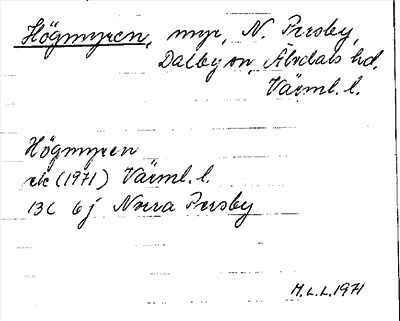 Högmyren, myr, N. Persby,
Dalby sn, Älvdals hd,
Värml. l.
Högmyren
rik (1971) Värml. l.
13C 6j Norra Persby
M.L.L. 1971